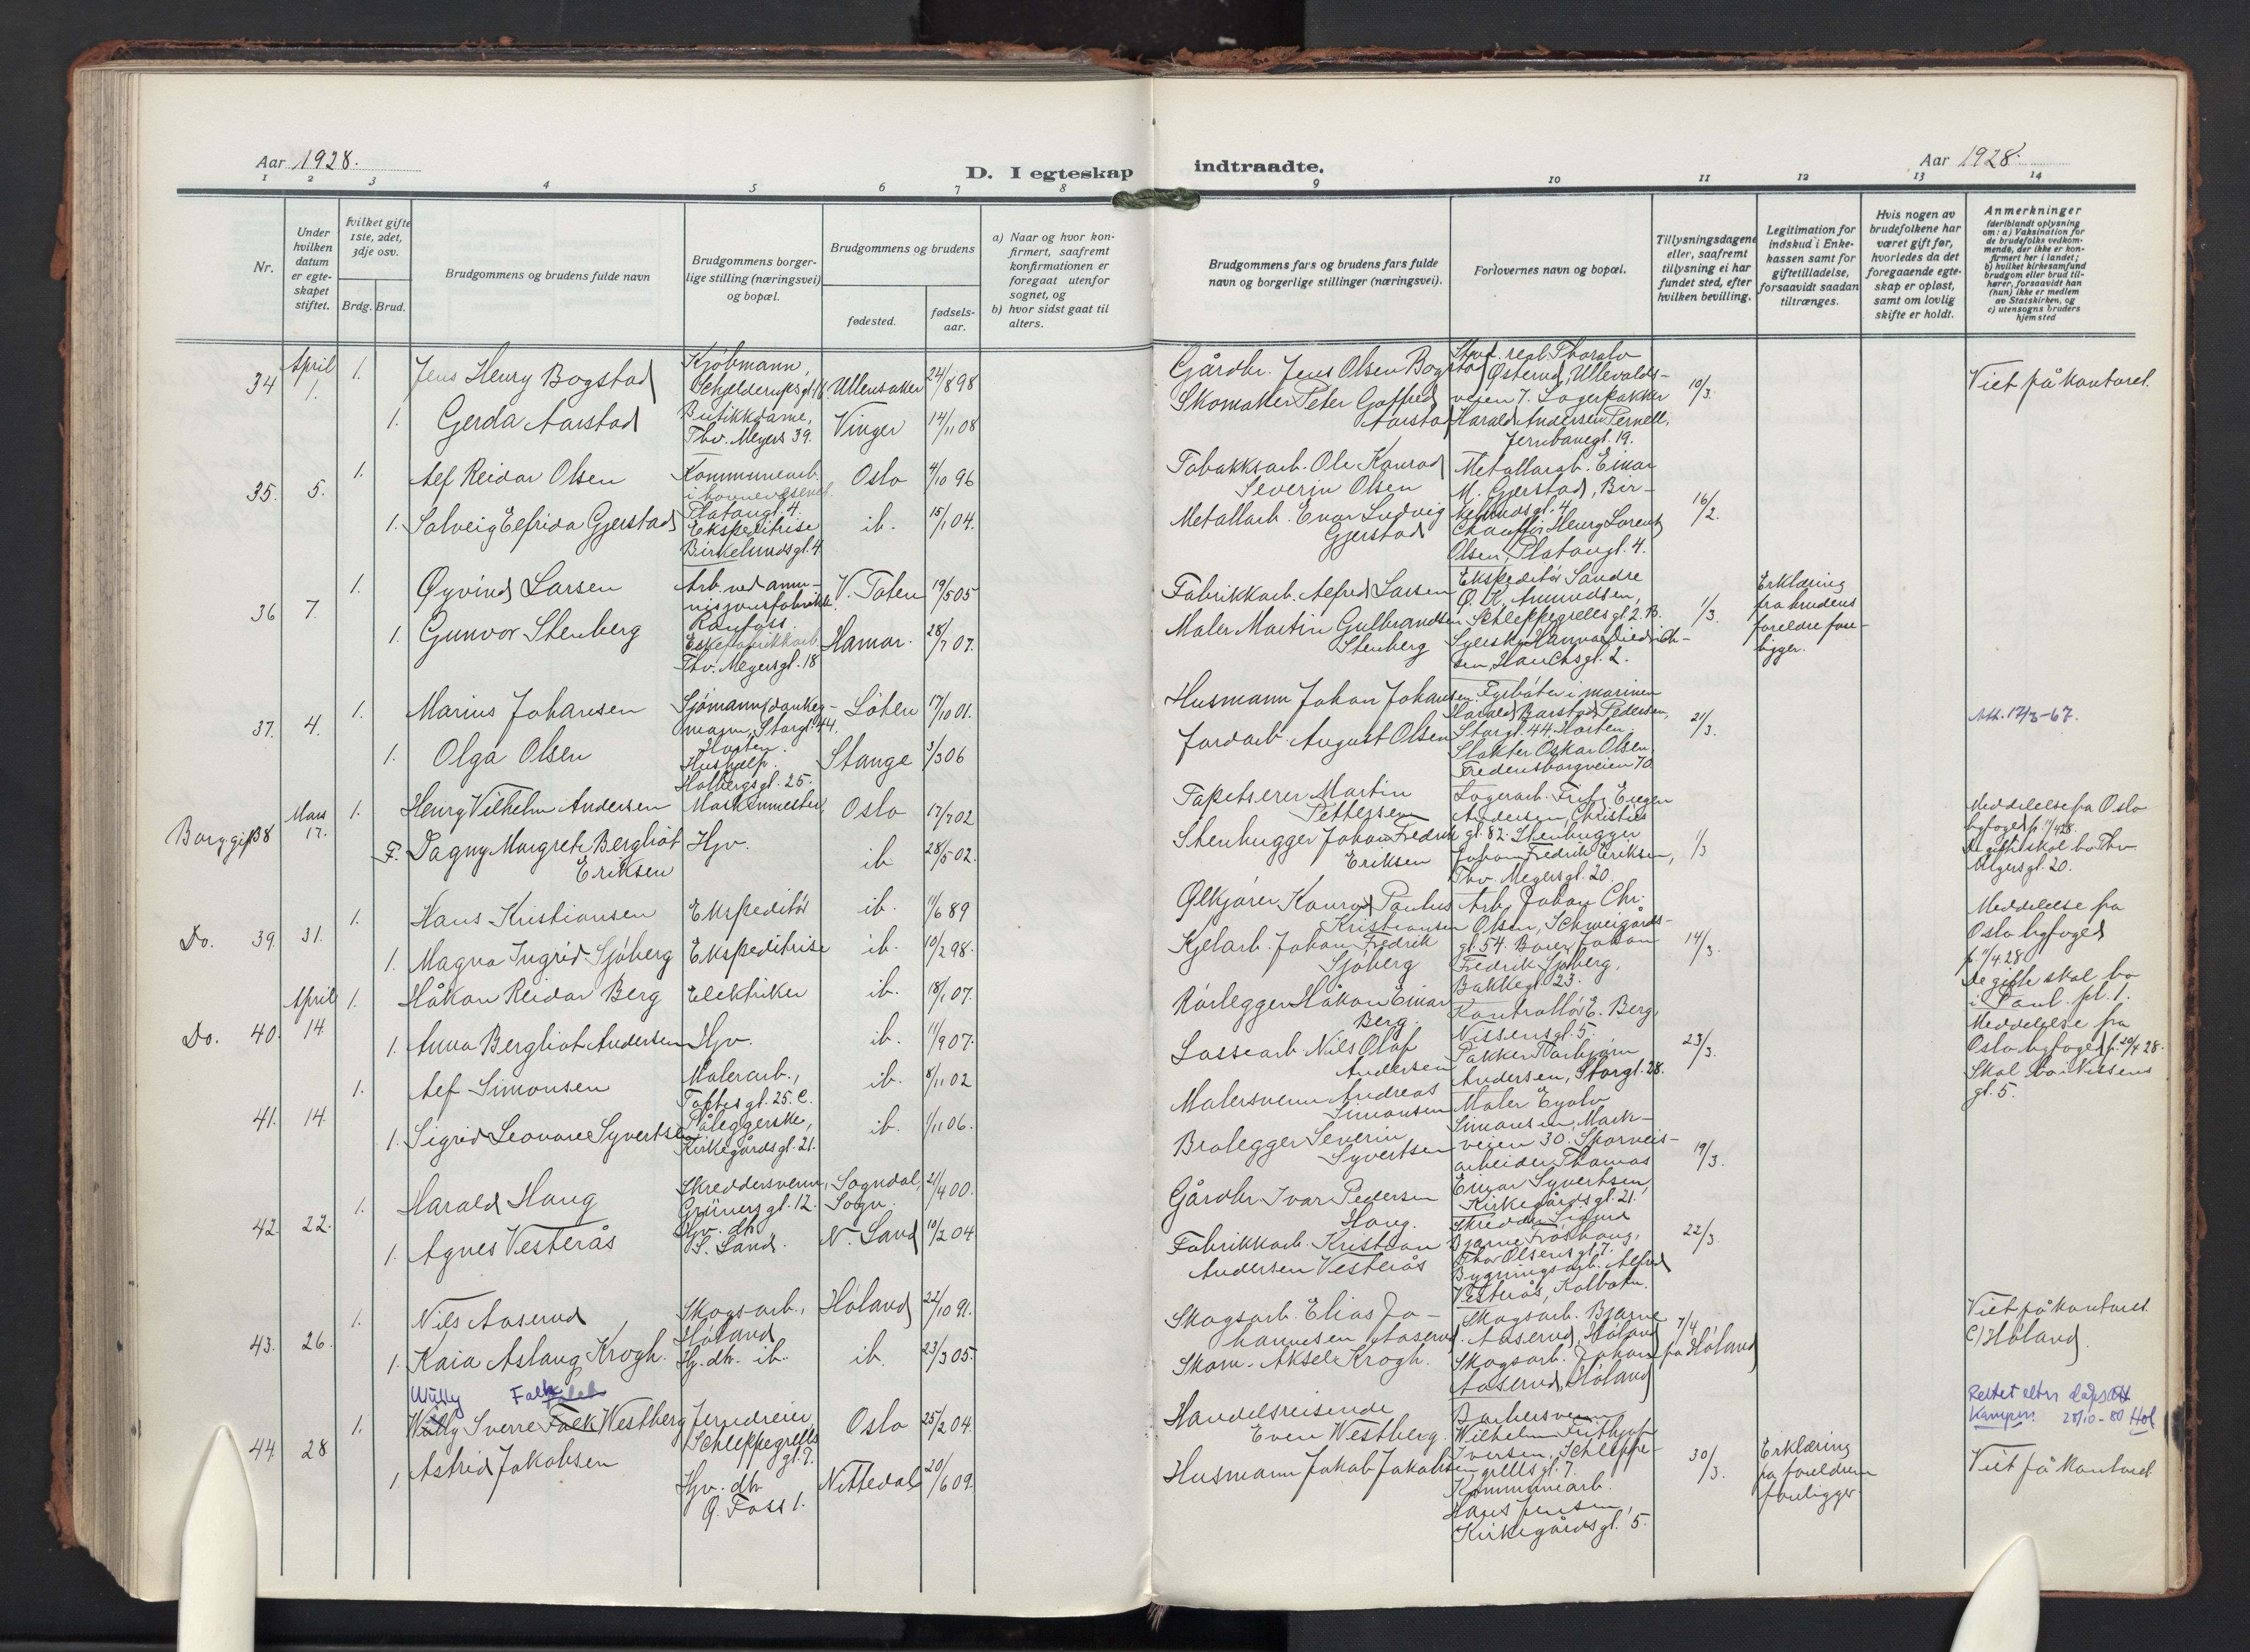 Aar 1928.
D. I egteskap
indtraadte.
Aar 1928.
1 2 3 4 5 6 7 8 9 10 11 12 13 14
Nr.
Under hvilken datum er egteskapet stiftet.
Hvilket gifte 1ste, 2det, 3dje osv.
Brdg. Brud.
Brudgommens og brudens fulde navn
Brudgommens borgerlige stilling (næringsvei) og bopæl.
Brudgommens og brudens
fødested.
fødselsaar.
a) Naar og hvor konfirmert, saafremt konfirmationen er foregaat utenfor sognet, og
b) hvor sidst gaat til alters.
Brudgommens fars og brudens fars fulde navn og borgerlige stillinger (næringsvei).
Forlovernes navn og bopæl.
Tillysningsdagene eller, saafremt tillysning ei har fundet sted, efter hvilken bevilling.
Legitimation for indskud i Enkekassen samt for giftetilladelse, forsaavidt saadan tiltrænges.
Hvis nogen av brudefolkene har været gift før, hvorledes da det foregaaende egteskap er opløst, samt om lovlig skifte er holdt.
Anmerkninger
(deriblandt oplysning om: a) Vaksination for de brudefolks vedkommende, der ikke er konfirmert her i landet; b) hvilket kirkesamfund brudgom eller brud tilhører, forsaavidt han (hun) ikke er medlem av Statskirken, og c) utensogns bruders hjemsted
34 April 1. 1. Jens Henry Bogstad Kjøbmann, Schjelderupsgt. 16 Ullensaker 24/8 98
Gårdbr. Jens Olsen Bogstad
Stud. real. Thoralv Østerud, Ullevaldsveien 7. Lagerpakker Harald Andersen Pernelli, Jernbanegt. 19.
10/3.
Viet på kontoret.
1. Gerda Aarstad Butikkdame, Thv. Meyers 39. Vinger 14/11 08
Skomaker Peter Gotfred Aarstad
35. 5. 1. Alf Reidar Olsen Kommunearb. i havnevesenet. Platougt. 4. Oslo 4/10 96
Tobakksarb. Ole Konrad Severin Olsen
Metallarb. Einar M. Gjerstad, Birkelundsgt. 4
Chauffør Henry Lorentz Olsen, Platougt. 4.
16/2.
1. Solveig Elfrida Gjerstad Ekspeditrise Birkelundsgt. 4 ib. 15/1 04.
Metallarb. Einar Ludvig Gjerstad
36 7. 1. Øyvind Larsen Arb. ved ammunisjonsfabrikk. Raufoss. V. Toten 19/5 05
Fabrikkarb. Alfred Larsen
Ekspeditør Sandre O. K. Amundsen, Schleppegrellsgt. 2. B.
Syerske Hanna Diedrichsen, Hauchsgt. 2.
1/3.
Erklæring fra brudens foreldre foreligger.
1. Gunvor Stenberg Eskefabrikkarb. Thv. Meyersgt. 18 Hamar. 28/7 07.
Maler Martin Gulbrandsen Stenberg
37. 4. 1. Marius Johansen Sjømann (dankegmann, Storgt. 44, Horten. Løten 17/10 01.
Husmann Johan Johansen.
Fyrbøter i marinen Harald Barstad Pedersen, Storgt. 44 Horten
Slakter Oskar Olsen, Fredensborgveien 70
21/3.
Att. 17/3-67.
1. Olga Olsen Hushjelp. Holbergsgt. 25. Stange 3/3 06
Jordarb. August Olsen
Borg. gift 38 Mars 17. 1. Henry Vilhelm Andersen Maskinmester, Oslo 17/7 02
Tapetserer Martin Pettersen
Lagerarb. Fritz Eugen Andersen, Christies gt. 82. Stenhugger Johan Fredrik Eriksen, Thv. Meyersgt. 20.
1/3
Meddelelse fra Oslo byfoged p. 11/4 28. De gifte skal bo Thv Meyersgt. 20.
F. Dagny Margrete Bergliot Eriksen Hjv. ib 28/5 02.
Stenhugger Johan Fredrik Eriksen
Do. 39. 31. 1. Hans Kristiansen Ekspeditør ib. 11/6 89
Ølkjører Konrad Paulus Kristiansen
Arb. Johan Chr. Olsen, Schweigårdsgt. 54. Borer Johan Fredrik Sjøberg, Bakkegt. 23.
14/3.
Meddelelse fra Oslo byfoged p. 11/4 28. De gifte skal bo i Paul. pl. 1.
1. Magna Ingrid Sjøberg Ekspeditrise ib. 10/2 98.
Kjelarb. Johan Fredrik Sjøberg
Do. 40. April 14. 1. Håkon Reidar Berg Elektriker ib. 18/1 07.
Rørlegger Håkon Einar Berg.
Kontrollør E. Berg, Nissensgt. 5.
Pakker Thorbjørn Andersen, Storgt. 28.
23/3.
Meddelelse fra Oslo byfoged p. 20/4 28. Skal bo Nilsens gt. 5.
1. Anna Bergliot Andersen Hjv. ib. 11/9 07.
Lossearb. Nils Olaf Andersen
41. 14. 1. Alf Simonsen Malerarb., Toftes gt. 25. C. ib. 8/11 02
Malersvenn Andreas Simonsen
Maler Eyolv Simonsen, Markveien 30. Sporveisarbeider Thomas Einar Syvertsen, Kirkegårdsgt. 21.
19/3.
1. Sigrid Leonore Syvertsen Påleggerske, Kirkegårdsgt. 21. ib. 1/11 06.
Brolegger Severin Syvertsen
42. 22. 1. Harald Haug Skreddersvenn, Grünersgt. 12. Sogndal, Sogn. 21/4 00.
Gårdbr. Ivar Pedersen Haug.
Skredder Sigurd Bjarne Frøshaug, Thor Olsensgt. 7.
Bygningsarb. Alfred Vesterås, Kolbotn.
22/3.
1. Agnes Vesterås Hjv. dtr. S. Land. N. Land 10/2 04
Fabrikkarb. Kristian Andersen Vesterås
43. 26. 1. Nils Aaserud Skogsarb., Høland Høland 22/10 91.
Skogsarb. Elias Johannesen Aaserud.
Skogsarb. Bjarne Aaserud, Høland
Skogsarb. Johan Aaserud, Høland
7/4 fra Høland
Viet på kontoret. C/ Høland.
1. Kaia Aslaug Krogh. Hj. dtr. ib. ib. 23/3 05.
Skom. Aksel Krogh.
Willy Falk
44. 28 1. Willy Sverre Falk Westberg Jerndreier, Schleppegrells gt. 7. Oslo 25/2 04.
Handelsreisende Even Westberg.
Barbersvenn Wilhelm Frithjof Iversen, Schleppegrellsgt. 7.
Kommunearb. Hans Jensen, Kirkegårdsgt. 5.
30/3.
Erklæring fra foreldrene foreligger.
Rettet etter dåpsatt Kampen 28/10-80 Hol
Viet på kontoret
1. Astrid Jakobsen Hjv. dtr. Ø. Foss 1. Nittedal 20/6 09.
Husmann Jakob Jakobsen